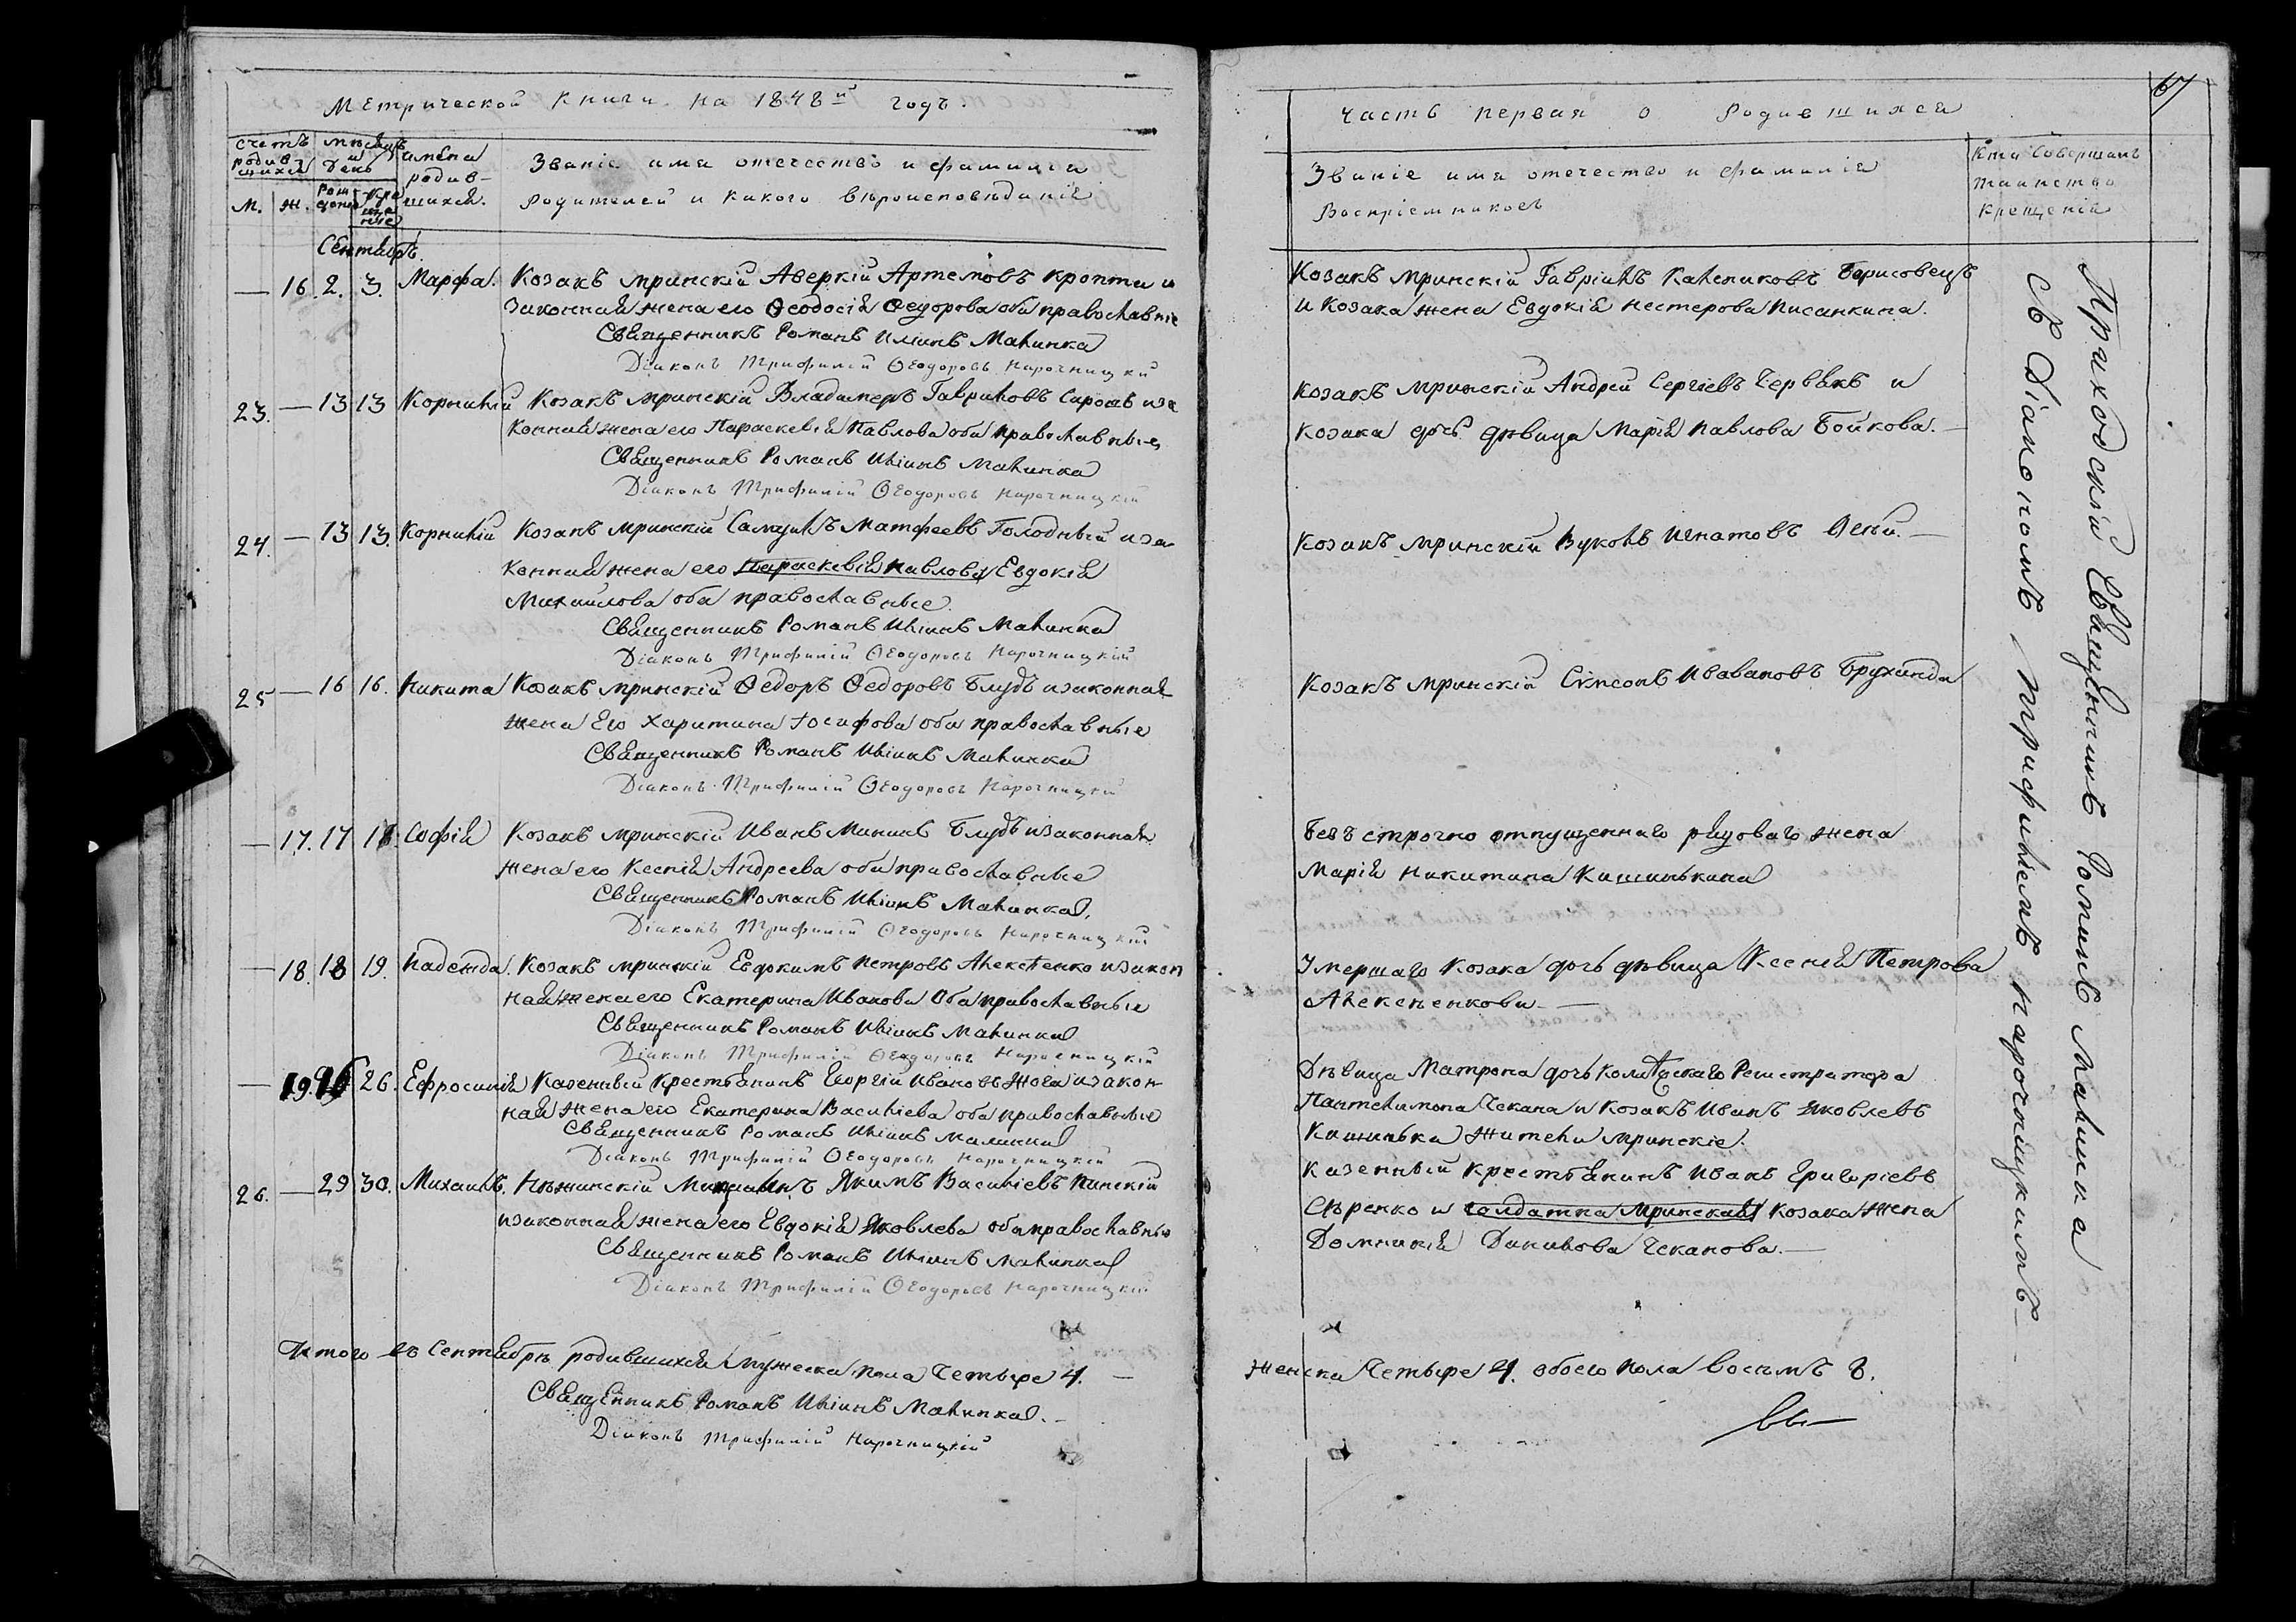 Метрической Книги на 1848й годъ.
Счетъ родившихся
Мѣсяцъ и День
Имена родившихся.
Званіе имя отечество и фамилія
родителей и какого вѣроисповѣданія
М. Ж. Рожденія Крещенія
Сентябрь.
— 16. 2. 3. Марфа. Козакъ мринскій Аверкій Артемовъ Кропти и
законная жена его Ѳеодосія Ѳедорова оба православніе
Священникъ Романъ Иліинъ Малинка
Діаконъ Трифилій Ѳеодоровъ Нарочницкій
23. — 13 13 Корнилій Козакъ мринскій Владимеръ Гавриловъ Сирошъ иза
конная жена его Параскевія Павлова оба православные
Священникъ Романъ Иліинъ Малинка
Діаконъ Трифилій Ѳеодоровъ Нарочницкій
24. — 13 13. Корнилій Козакъ мринскій Самуилъ Матфеевъ Голодный иза
конная жена его Параскевія Павлова Евдокія
Михаилова оба православные.
Священникъ Романъ Иліинъ Малинка
Діаконъ Трифилій Ѳеодоровъ Нарочницкій
25 — 16 16. Никита Козакъ мринскій Ѳедоръ Ѳедоровъ Блудъ изаконная
жена Его Харитина Іосифова оба православные
Священникъ Романъ Иліинъ Малинка
Діаконъ Трифилій Ѳеодоровъ Нарочницкій
— 17. 17 18. Софія Козакъ мринскій Иванъ Мининъ Блудъ изаконная
жена его Ксенія Андреева оба православные
Священникъ Романъ Иліинъ Малинка.
Діаконъ Трифилій Ѳеодоровъ Нарочницкій
— 18. 18 19. Надежда. Козакъ мринскій Евдокимъ Петровъ Алексѣенко изакон
ная жена его Екатерина Иванова Оба православные
Священникъ Романъ Иліинъ Малинка
Діаконъ Трифилій Ѳеодоровъ Нарочницкій
— 19. 26. Ефросинія Казенный Крестьянинъ Георгій Ивановъ Жога изакон
ная жена его Екатерина Василіева оба православные
Священникъ Романъ Иліинъ Малинка
Діаконъ Трифилій Ѳеодоровъ Нарочницкій
26. — 29 30. Михаилъ. Нѣжинскій Якимъ Василіевъ Пинскій
изаконная жена его Евдокія Яковлева оба православны
Священникъ Романъ Иліинъ Малинка
Діаконъ Трифилій Ѳеодоровъ Нарочницкій
Итого въ Сентябрѣ родившихся мужеска пола Четыре 4. —
Священникъ Романъ Иліинъ Малинка. —
Діаконъ Трифилій Нарочницкій
67
Часть первая о Родившихся
Званіе имя отечество и фамилія
Воспріемниковъ
Кто Совершалъ
таинство
крещенія
Козакъ мринскій Гавріилъ Калениковъ Борисовецъ
и Козака жена Евдокія Нестерова Писанкина.
Козакъ мринскій Андрей Сергіевъ Червякъ и
козака дочь дѣвица Марія Павлова Бойкова. —
Козакъ мринскій Вуколъ Игнатовъ —
Козакъ мринскій Сѵмеонъ Ивавановъ Брухинда
Безъ строчно отпущеннаго рядоваго жена
Марія Никитина Кишинькина
Умершаго Козака дочь дѣвица Ксенія Петрова
Алексѣенкова —
Дѣвица Матрона дочь Колежскаго Регистратора
Пантелимона Чекана и Козакъ Иванъ Яковлевъ
Кишинька жители мринскіе.
Казенный Крестьянинъ Иванъ Григоріевъ
Сѣренко и солдатка Мринская Козака жена
Домникія Данилова Чеканова. —
Женска Четыре 4. обоего пола восемъ 8.
Приходскій Священникъ Романъ Малинка
съ Діакономъ Трифиліемъ Нарочницкимъ —